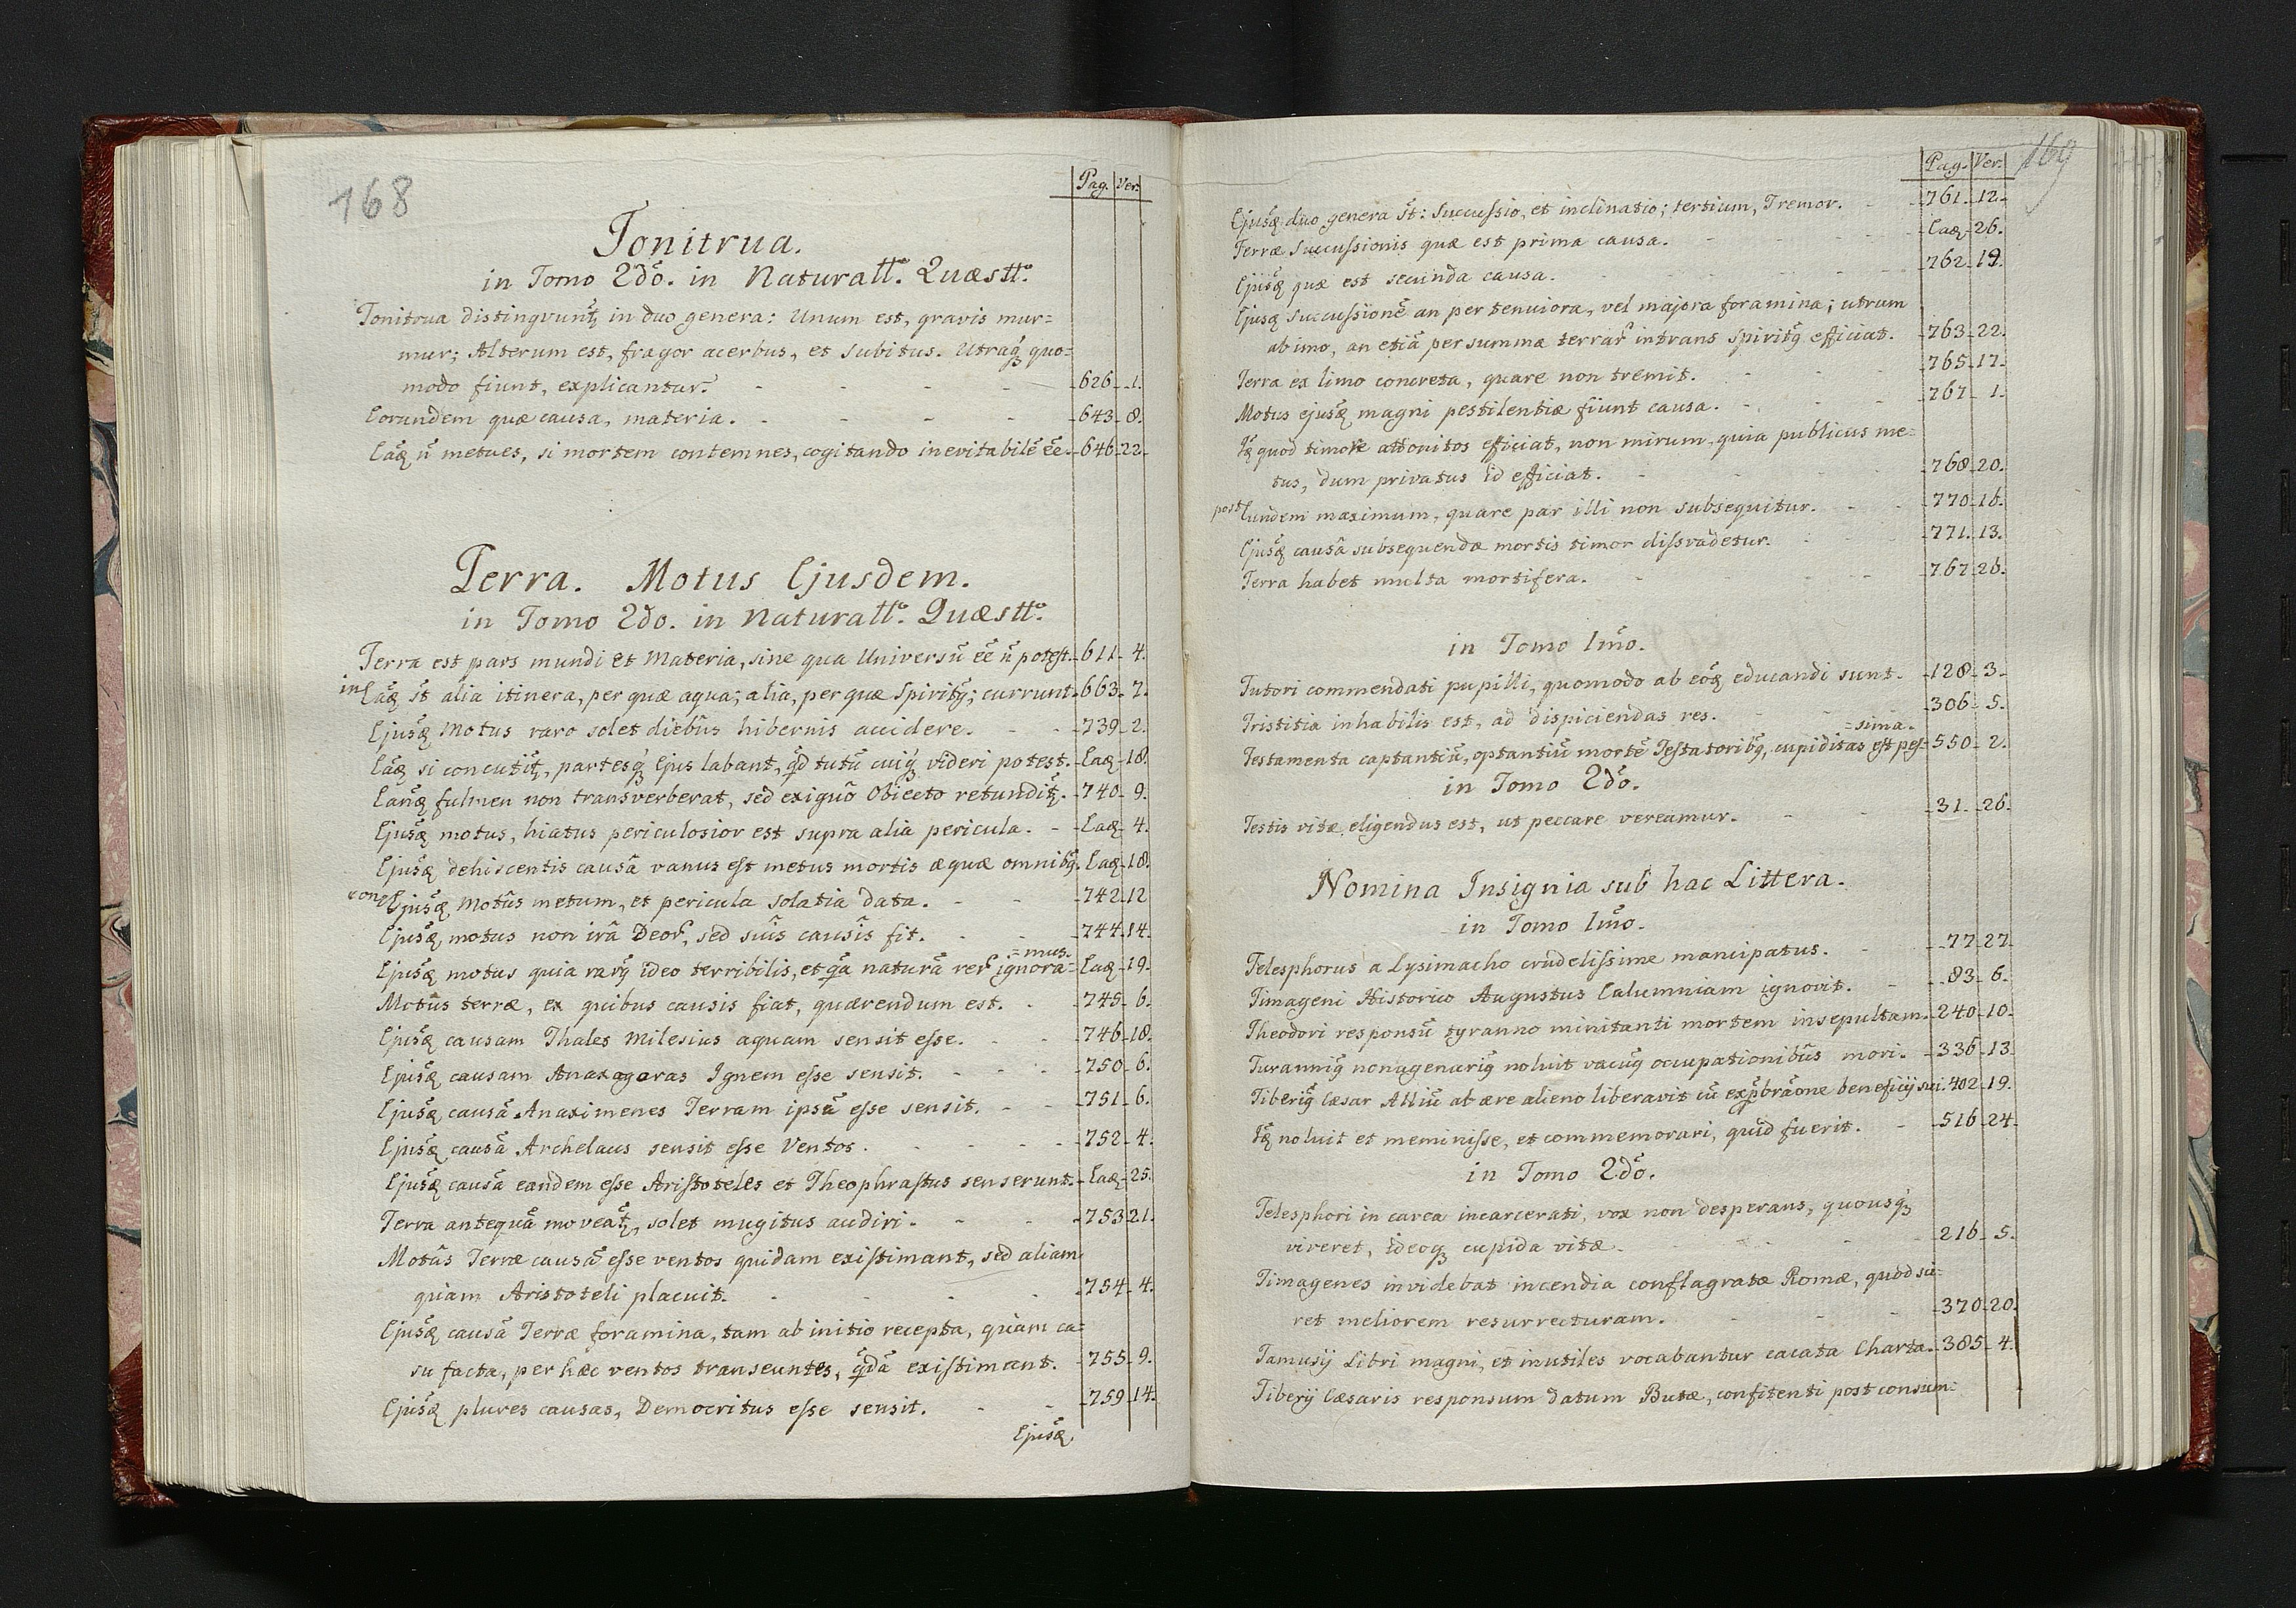 168
Pag. Ver.
Tonitrua.
in Tomo 2dõ. in Naturall.º Quæstt.º
Tonitrua distingvunt̃ꝫ in duo genera: Unum est, gravis mur=
mur; Alterum est, fragor acerbus, et subitus. Utraqꝫ quo=
modo fiunt, explicantur. - - - - 626. 1.
Eorundem quæ causa, materia. - - - - 643. 8.
Eãꝫ ñ metues, si mortem contemnes, cogitando inevitabilẽ ẽe. 646. 22.
Terra. Motus Ejusdem.
in Tomo 2do. in Naturall.º Quæstt.º
Terra est pars mundi et Materia, sine qua Universũ ẽe ñ potest. 611. 4.
in Eãꝫ st̃ alia itinera, per quæ aqua; alia, per quæ Spiritꝯ; currunt. 663. 7.
Ejusꝫ̃ Motus raro solet diebus hibernis accidere. - - 739. 2.
Eãꝫ si concutit̃ꝫ, partesqꝫ Ejus labant, qd̃ tutũ cuiqꝫ videri potest. Eaꝫ 18.
Eanꝫ̃ fulmen non transverberat, sed exiguo Obiecto retundit̃ꝫ. 740. 9.
Ejusꝫ̃ motus, hiatus periculosior est supra alia pericula. - Eaꝫ 4.
Ejusꝫ̃ dehiscentis causâ vanus est metus mortis æquæ omnibꝯ. Eaꝫ 18.
con Ejusꝫ̃ Motûs metum, et pericula solatia data. - - 742. 12
Ejusꝫ̃ motus non irâ Deor̃, sed suis causis fit. - - 744. 14.
=mus.
Ejusꝫ̃ motus quia rarꝯ ideo terribilis, et qã naturã rer̃ ignora= Eaꝫ 19.
Motûs terræ, ex quibus causis fiat, quærendum est. - 745. 6.
Ejusꝫ̃ causam Thales Milesius aquam sensit esse. - - 746. 18.
Ejusꝫ̃ causam Anaxagoras Ignem esse sensit. - - - 750. 6.
Ejusꝫ̃ causã Anaximenes Terram ipsã esse sensit. - - 751. 6.
Ejusꝫ̃ causã Archelaus sensit esse Ventos. - - - 752. 4.
Ejusꝫ̃ causã eandem esse Aristoteles et Theophrastus senserunt. Eaꝫ 25.
Terra antequã moveat̃ꝫ, solet mugitus audiri. - - 753 21.
Motûs Terræ causã esse ventos quidam existimant, sed aliam
quàm Aristoteli placuit. - - - - 754. 4.
Ejusꝫ̃ causã Terræ foramina, tam ab initio recepta, quàm ca=
su facta, per hæc ventos transeuntes, qdã existimant. 755. 9.
Ejusꝫ̃ plures causas, Democritus esse sensit. - - 759. 14.
Ejusꝫ̃
169
Pag. Ver.
Ejusꝫ̃ duo genera st̃: Succussio, et inclinatio; tertium, Tremor. - 761. 12.
Terræ Succussionis quæ est prima causa. - - - Eaꝫ 26.
Ejusꝫ̃ quæ est secunda causa. - - - - 762. 19.
Ejusꝫ̃ succussionẽ an per tenuiora, vel majora foramina; utrum
ab imo, an etiã per summa terrar̃ intrans Spiritꝯ efficiat. 763. 22.
Terra ex limo concreta, quare non tremit. - - - 765. 17.
Motus ejusꝫ̃ magni pestilentiæ fiunt causa. - - - 767. 1.
Iꝫ̃ quod timore attonitos efficiat, non mirum, quia publicus me=
tus, dum privatus id efficiat. - - - - 768. 20.
post Eundem maximum, quare par illi non subsequitur. - - 770. 16.
Ejusꝫ̃ causâ subsequendæ mortis timor dissvadetur. - - 771. 13.
Terra habet multa mortifera. - - - - 767. 26.
in Tomo 1mõ.
Tutori commendati pupilli, quomodo ab eõꝫ educandi sunt. - 128. 3.
Tristitia inhabilis est, ad dispiciendas res. - - 306. 5.
=sima.
Testamenta captantiũ, optantiũ mortẽ Testatoribꝯ, cupiditas est pes= 550. 2.
in Tomo 2dõ.
Testis vitæ eligendus est, ut peccare vereamur. - - 31. 26.
Nomina Insignia sub hac Littera.
in Tomo 1mõ.
Telesphorus a Lysimacho crudelissime mancipatus. - 77. 27.
Timageni Historico Augustus Calumniam ignovit. - 83. 6.
Theodori responsũ tyranno minitanti mortem insepultam. 240. 10.
Turanniꝯ nonagenariꝯ noluit vacuꝯ occupationibus mori. 336. 13.
Tiberiꝯ Cæsar Alliũ ab ære alieno liberavit cũ exp̱brãone beneficij sui. 402. 19.
Iꝫ̃ noluit et meminisse, et commemorari, quid fuerit. - 516. 24.
in Tomo 2dõ.
Telesphori in cavea incarcerati, vox non desperans, quousqꝫ
viveret, ideoqꝫ cupida vitæ. - - - - 216. 5.
Timagenes invidebat incendia conflagratæ Romæ, quod sci=
ret meliorem resurrecturam. - - - 370. 20.
Tamusij Libri magni, et inutiles vocabantur cacata Charta. 385. 4.
Tiberij Cæsaris responsum datum Butæ, confitenti post consum=